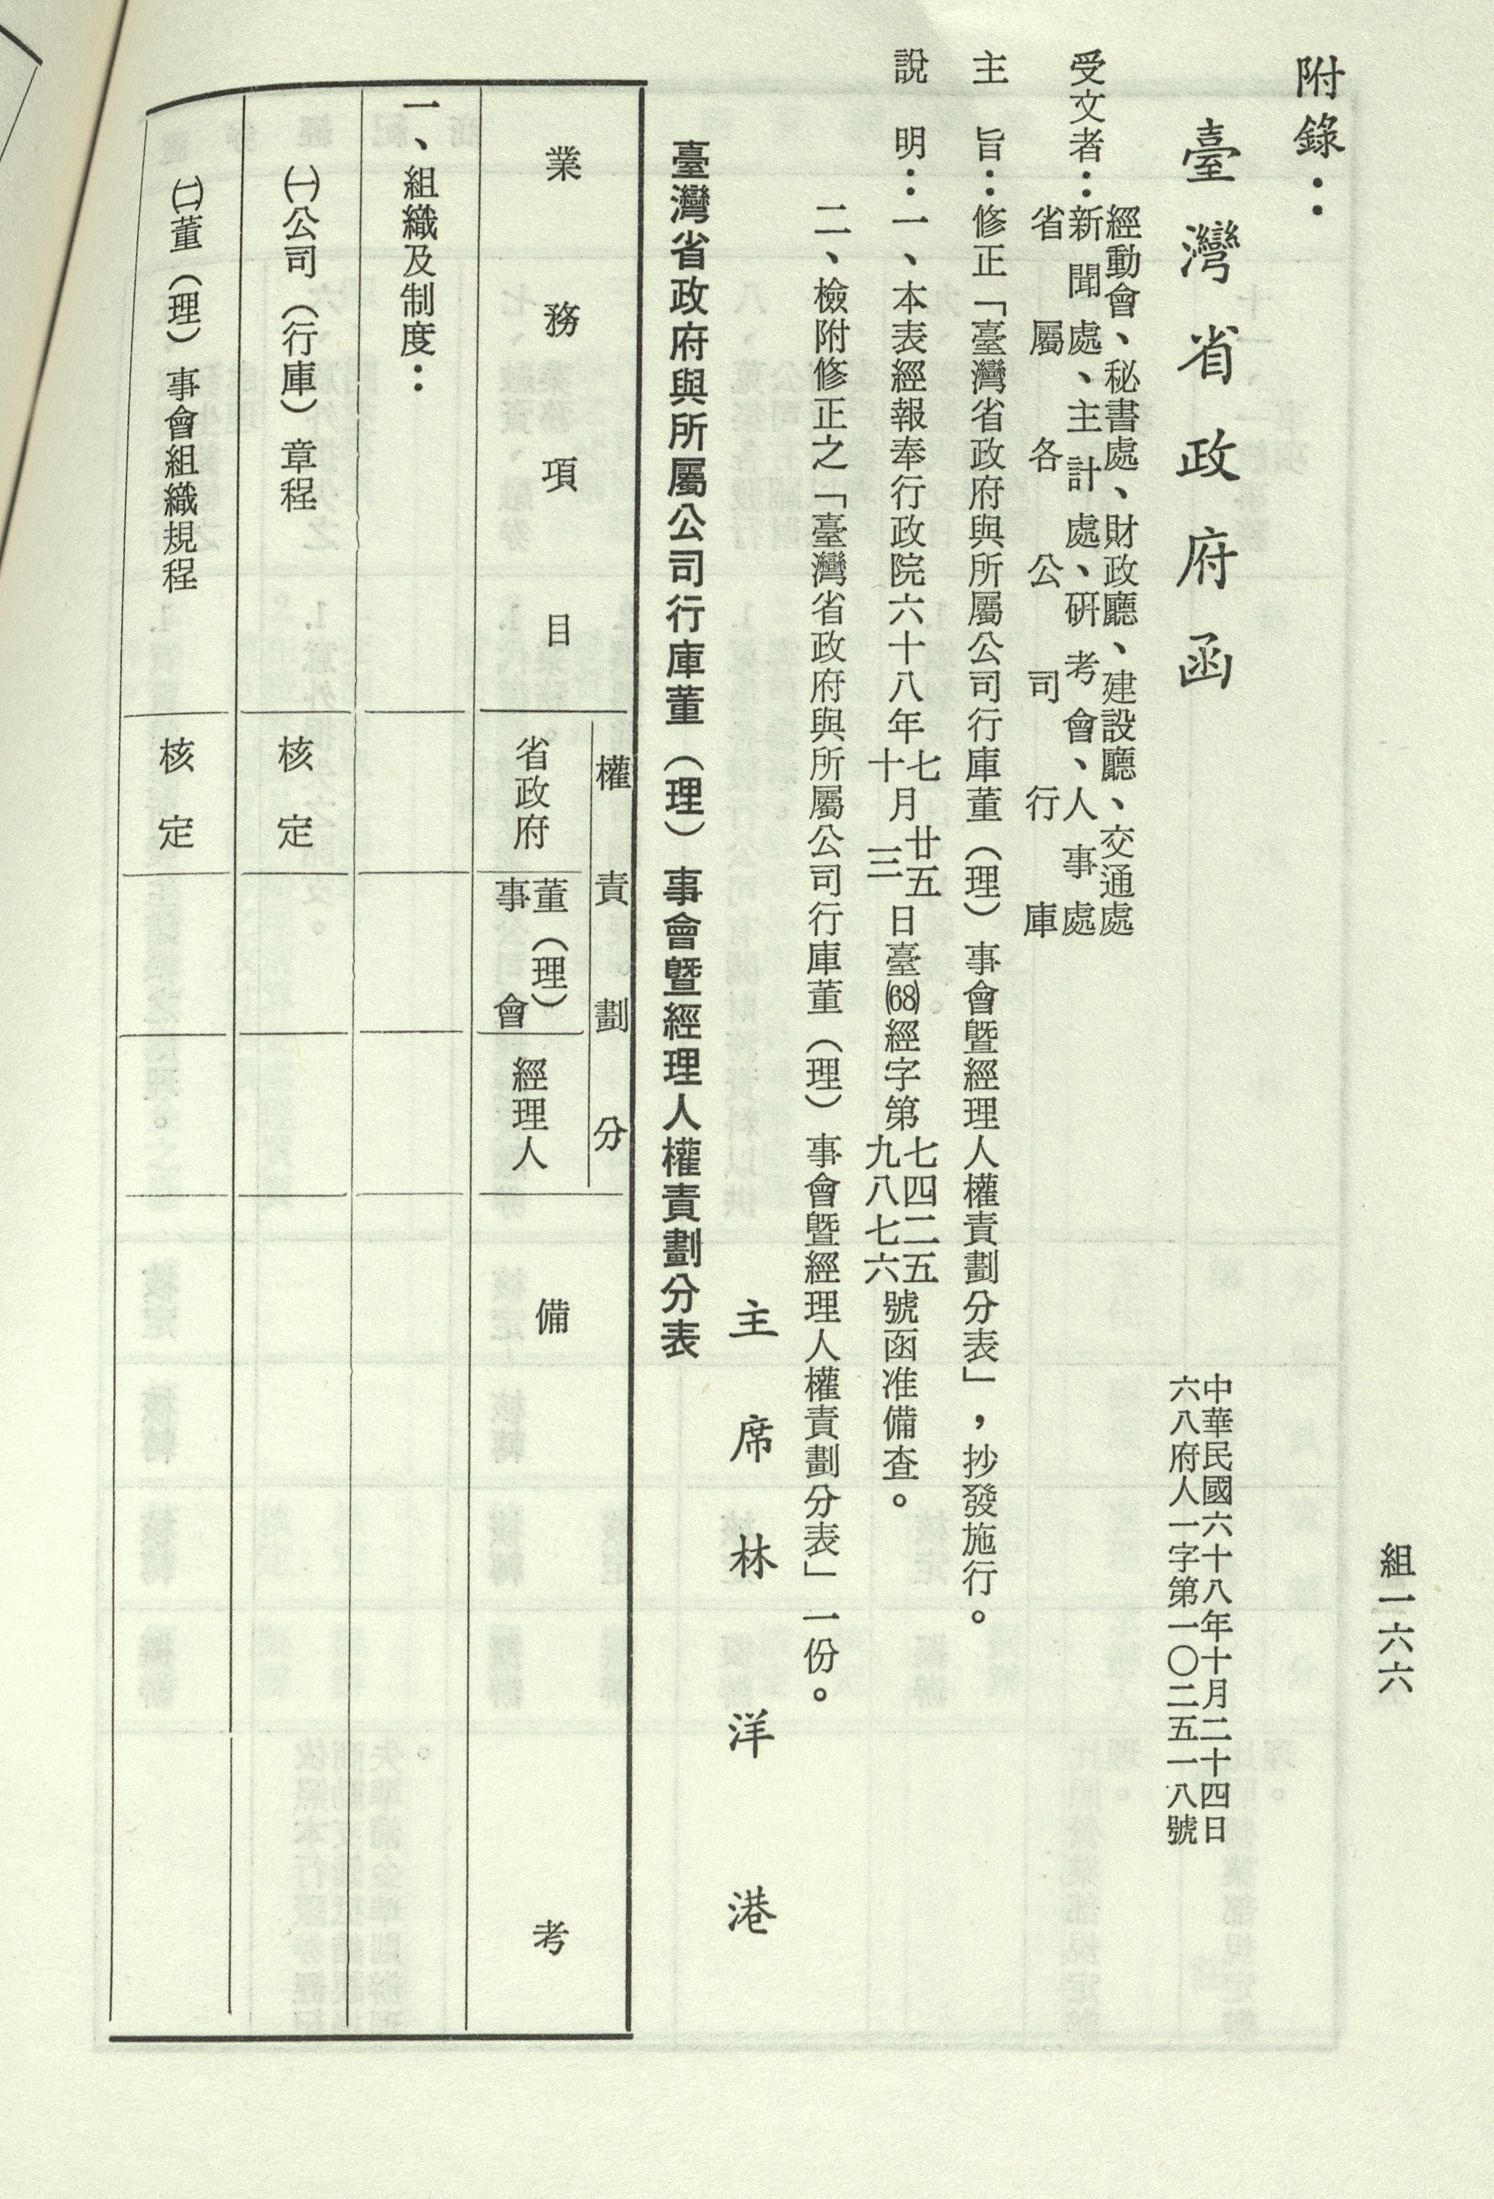 組一六六
附錄：
臺灣省政府函
中華民國六十八年十月二十四日
六八府人一字第一〇二五一八號
受文者：
經動會、秘書處、財政廳、建設廳、交通處
新聞處、主計處、研考會、人事處
省屬各公司行庫
主旨：修正「臺灣省政府與所屬公司行庫董（理）事會暨經理人權責劃分表」，抄發施行。
說明：一、本表經報奉行政院六十八年
七
十
月
廿五
三
日臺(68)經字第
七四二五
九八七六
號函准備查。
二、檢附修正之「臺灣省政府與所屬公司行庫董（理）事會暨經理人權責劃分表」一份。
主席 林洋港
臺灣省政府與所屬公司行庫董（理）事會暨經理人權責劃分表
業務項目
權責劃分
省政府
董（理）
事會
經理人
備考
一、組織及制度：
㈠公司（行庫）章程
核定
㈡董（理）事會組織規程
核定